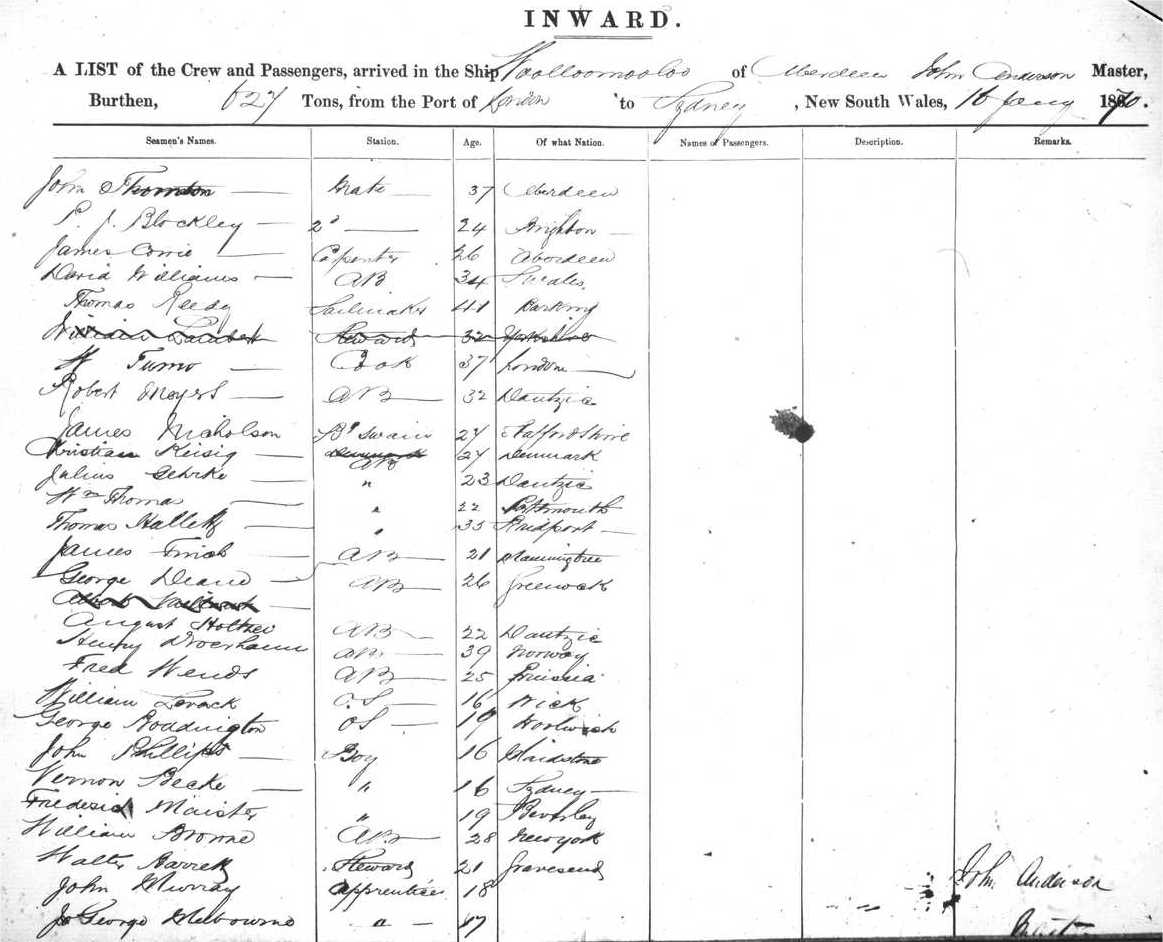 INWARD.
A LIST of the Crew and Passengers, arrived in the Ship Woolloomooloo of Aberdeen John Anderson Master,
Burthen, 627 Tons, from the Port of London to Sydney, New South Wales, 16 Jany 1870.
Seamen's Names. Station. Age. Of what Nation. Names of Passengers. Description. Remarks.
John Thornton Mate 37 Aberdeen
P. J. Blockley 2d 24 Brighton
James Corrie Carpenter 26 Aberdeen
David Williams AB 34
Thomas Reedy Sailmaker 41 Barking
William Lambert Steward 32 Yorkshire
W Cook 37 London
Robert Meyers AB 32 Dantzic
James Nicholson Bt Swain 27 Staffordshire
Christian Reisig Denmark AB 27 Denmark
Julius Gehrke " 23 Dantzic
Wm Thomas " 22 Portsmouth
Thomas Hallett " 35 Bridport
James Finch AB 21 Manningtree
George Deane AB 26 Greenock
August Holtzei AB 22 Dantzic
Henry AB 39 Norway
Fred Wends AB 25 Prussia
William Levack O.S 16 Wick
George Boddington OS 19 Woolwich
John Phillips Boy 16 Maidstone
Vernon Becke " 16 Sydney
Frederick Maister " 19 Beverley
William Browne AB 28 New York
Walter Garrett Steward 21 Gravesend
John Murray Apprentice 18
John Anderson
George Melbourne " 17